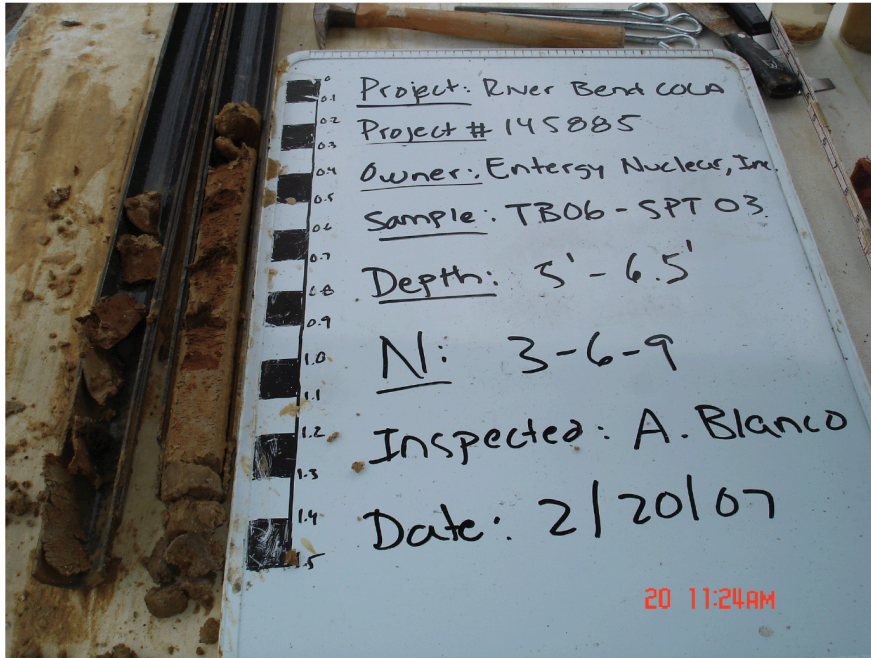 0
0.1
0.2
0.3
0.4
0.5
0.6
0.7
0.8
0.9
1.0
1.1
1.2
1.3
1.4
1.5
Project: River Bend COLA
Project # 145885
Owner: Entergy Nuclear, Inc.
Sample: TB06 - SPT 03
Depth: 5' - 6.5'
N: 3-6-9
Inspected: A. Blanco
Date: 2/20/07
20 11:24AM